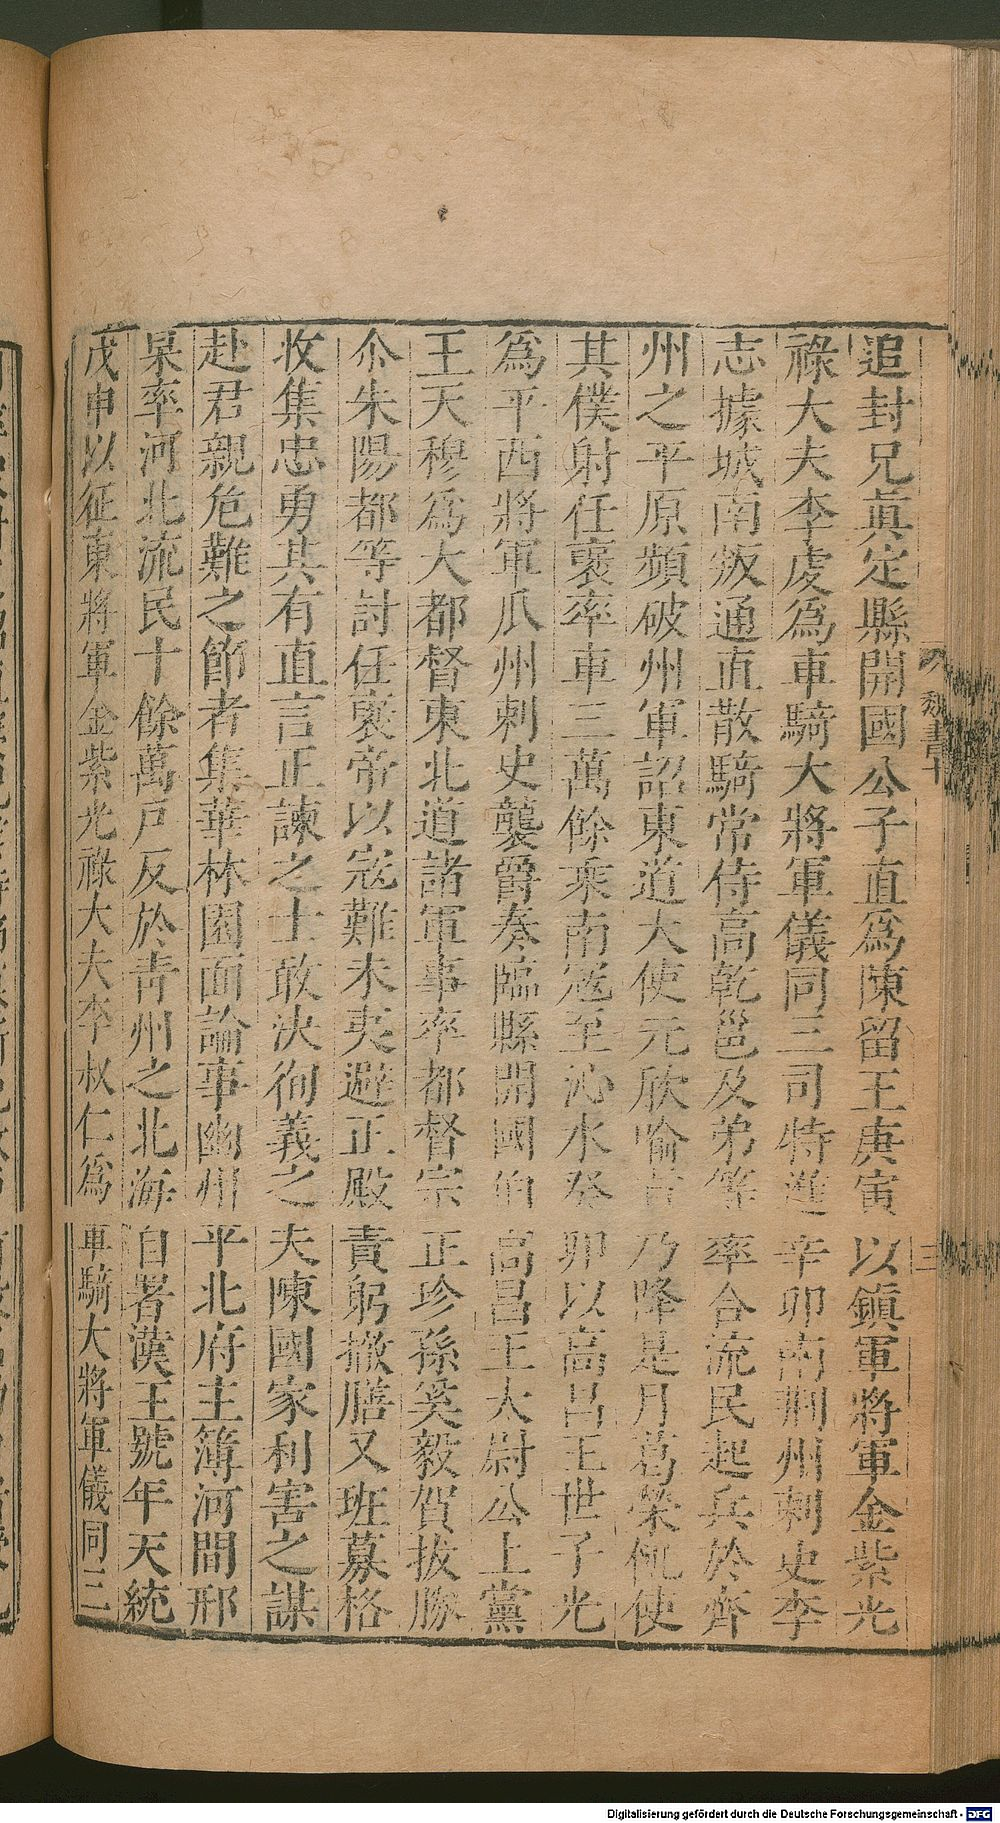 追封兄眞定縣開國公子直爲陳留王庚寅以鎮軍將軍金紫光
祿大夫李虔爲車騎大將軍儀同三司特進辛卯南荆州刺史李
志據城南叛通直散騎常侍高乾邕及弟等率合流民起兵於齊
州之平原頻破州軍詔東道大使元欣喻旨乃降是月葛榮使
其僕射任褒率車三萬餘乘南冦至沁水癸卯以高昌王世子光
爲平西將軍瓜州刺史襲爵奏臨縣開國伯高昌王太尉公上黨
王天穆爲大都督東北道諸軍事率都督宗正珍孫奚毅賀拔勝
尒朱陽都等討任褒帝以冦難未夷避正殿責躬撤膳又班募格
收集忠勇其有直言正諫之士敢決徇義之夫陳國家利害之謀
赴君親危難之節者集華林園面論事幽州平北府主簿河間邢
杲率河北流民十餘萬戶反於青州之北海自署漢王號年天統
戊申以征東將軍金紫光祿大夫李叔仁爲車騎大將軍儀同三
Digitalisierung gefördert durch die Deutsche Forschungsgemeinschaft - DFG